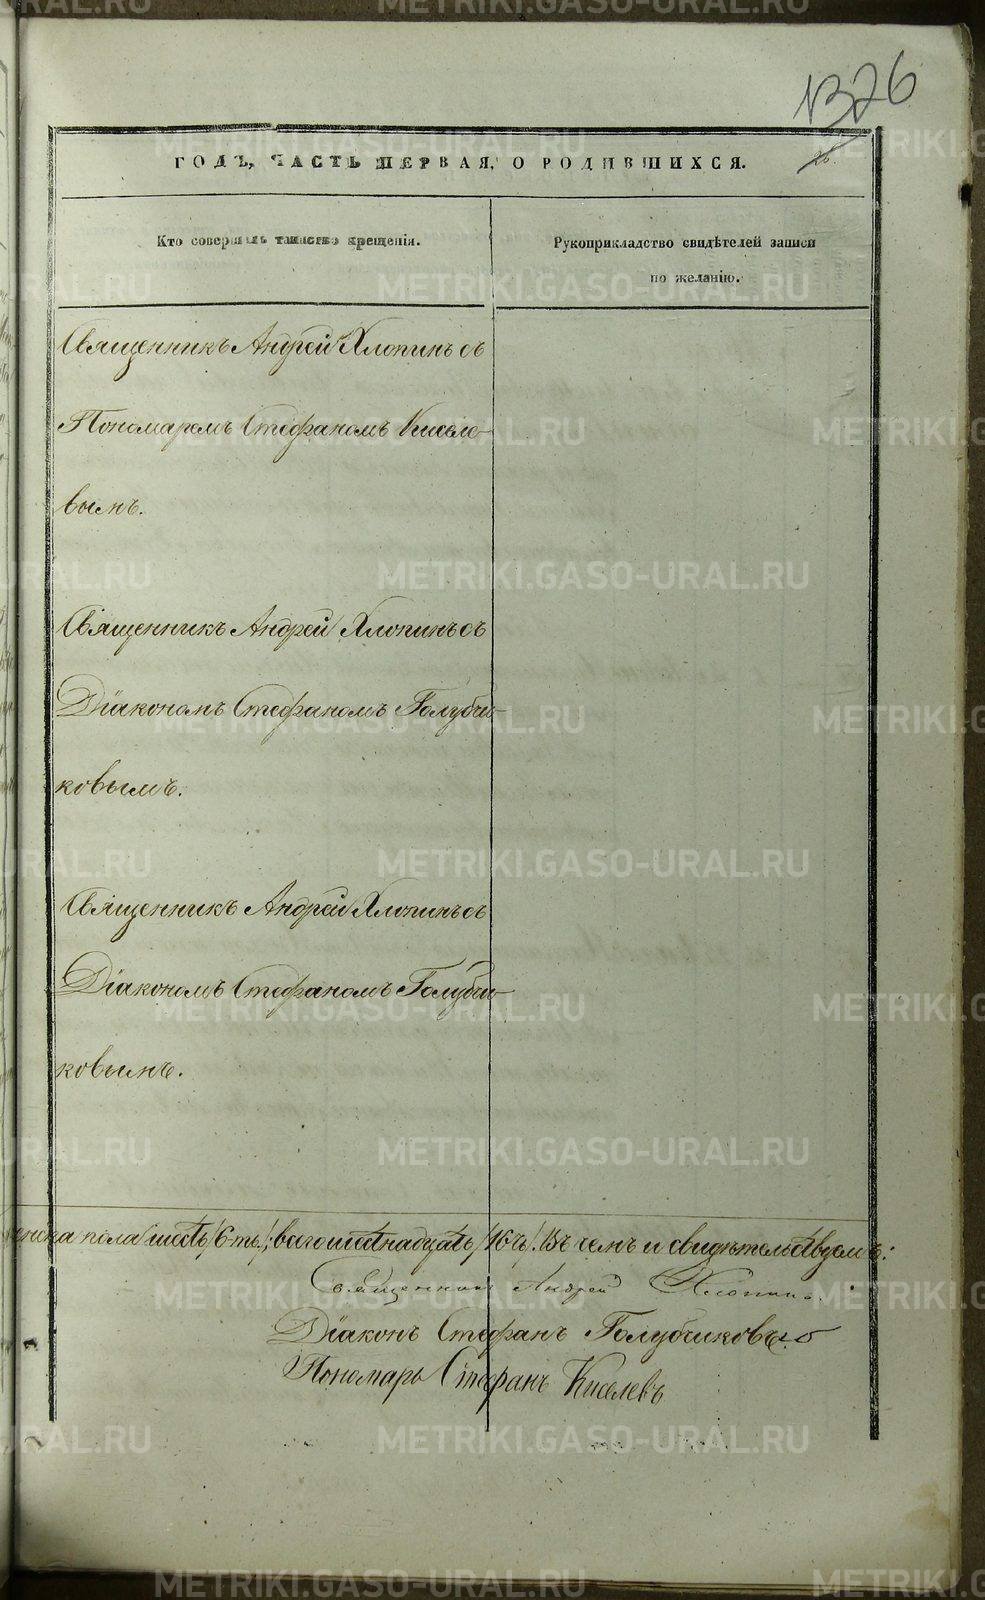 1326
26.
ГОДЪ, ЧАСТЬ ПЕРВАЯ, О РОДИВШИХСЯ.
Кто совершалъ таинство крещенія.
Рукоприкладство свидѣтелей записи
по желанію.
Священникъ Андрей Хлопинъ съ
Пономаремъ Стефаномъ Киселе-
вымъ.
Священникъ Андрей Хлопинъ съ
Діакономъ Стефаномъ Голубчи-
ковымъ.
Священникъ Андрей Хлопинъ съ
Діакономъ Стефаномъ Голубчи-
ковымъ.
пола шесть /6-ть/; всего шестнадцать /16ть/. Въ чемъ и свидѣтельствуемъ:
Священникъ Андрей Хлопинъ.
Діаконъ Стефанъ Голубчиковъ
Пономарь Стефанъ Киселевъ
METRIKI.GASO-URAL.RU